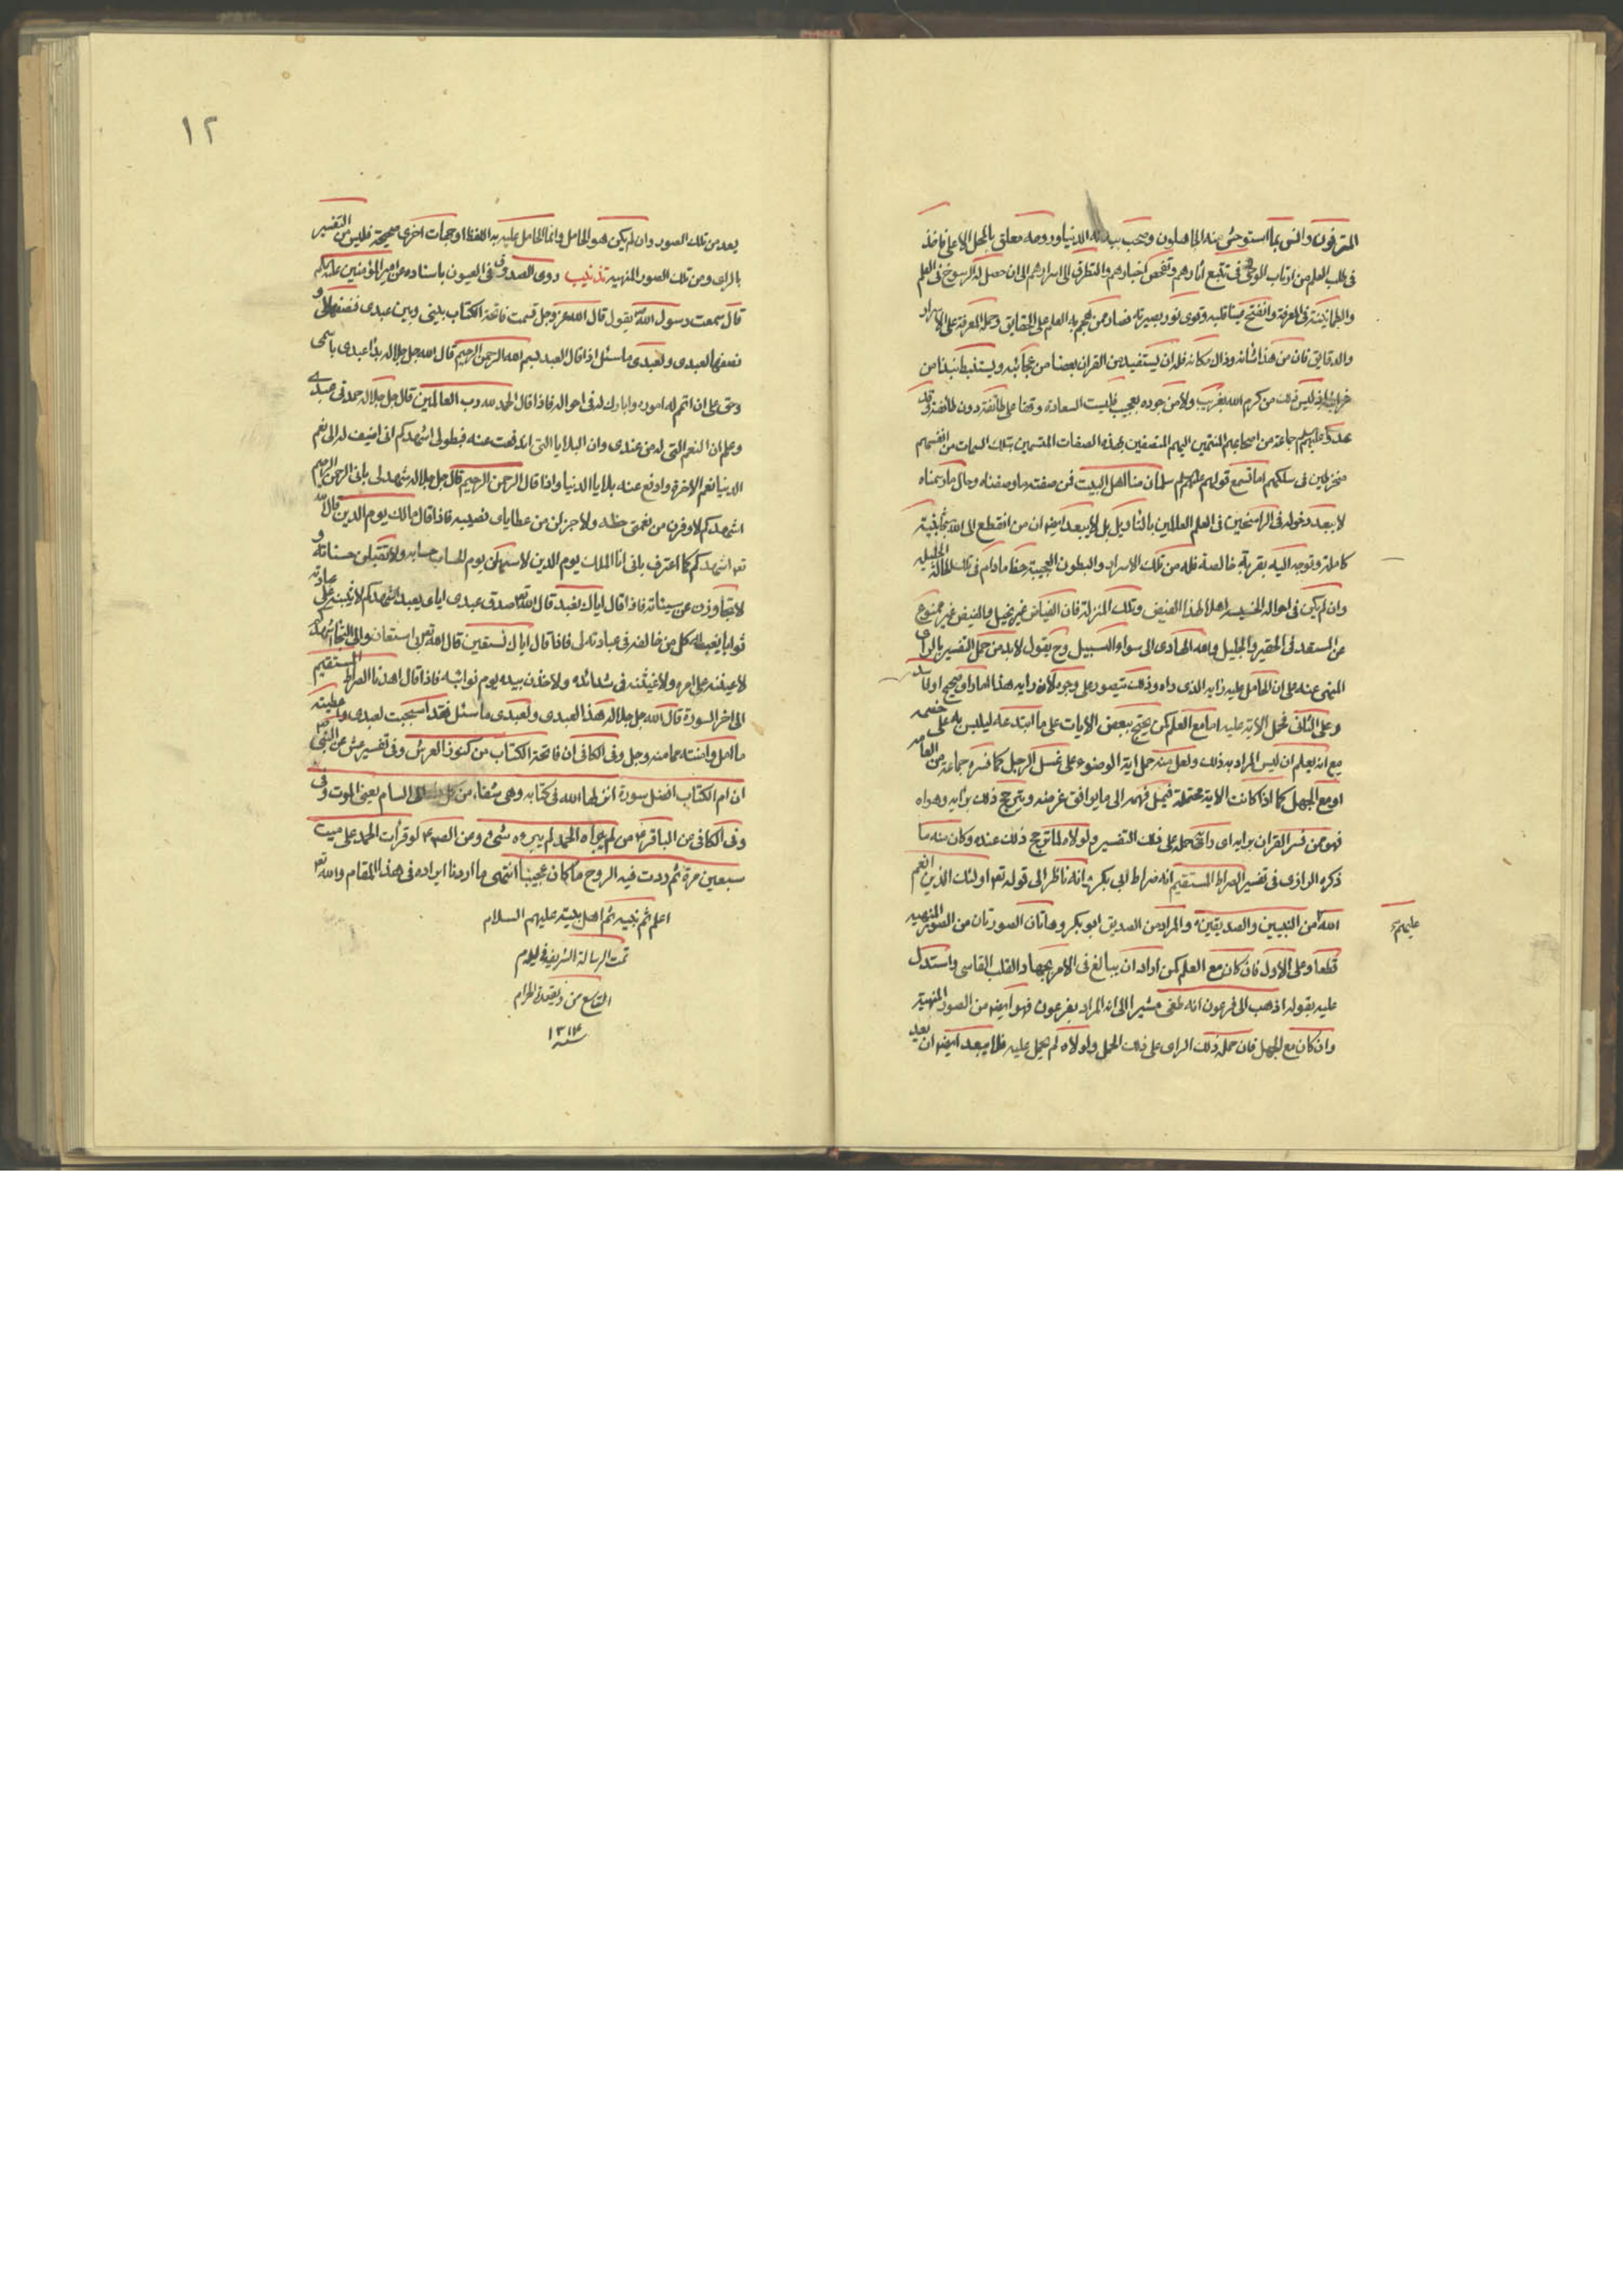 المترفون وانس بما استوحش منه الجاهلون وصحب ببدنه الدنيا وروحه معلق بالمحل الاعلى فاخذ
فى طلب العلم من ارباب الوحى فى تتبع اثارهم وتفحص اخبارهم والتطرق الى اسرارهم الى ان حصل له الرسوخ فى العلم
والطمانينة فى المعرفة وانفتح عينا قلبه وقوى نور بصيرته فصار ممن هجم به العلم على الحقايق وحملة المعرفة على الاسرار
والدقايق فان من هذا شانه وذاك مكانه فله ان يستفيد من القران بعضا من عجائبه ويستنبط نبذا من
غرايبه اذ ليس ذلك من كرم الله بغريب ولا من جوده بعجيب فليست السعادة وقفا على طائفة دون طائفة وقد
عدوا عليهم السلم جماعة من اصحابهم المنتمين اليهم المتصفين بهذه الصفات المتسمين بتلك السمات من انفسهم
منخرطين فى سلكهم اما تسمع قولهم عليهم السلم سلمان منا اهل البيت فمن صفته ما وصفناه وحاله ما رسمناه
لا يبعد دخوله فى الراسخين فى العلم العالمين بالتاويل بل لا يبعد ايضا ان من انقطع الى الله بجانبية
كاملة وتوجه اليه بقربة خالصة فله من تلك الاسرار والبطون العجيبة حظا ما دام فى تلك الحالة الجليلة
وان لم يكن فى احواله الخسيسة اهلا لهذا الفيض وتلك المنزلة فان الفياض غير بخيل والفيض غير ممنوع
عن المستعد فى الحقير والجليل والله الهادى الى سواء السبيل وح يقول لا بد من حمل التفسير بالراى
المنهى عنه على ان الحامل عليه رايه الذى راه وذلك يتصور على وجوه لان رايه هذا اما راى صحيح اولا
وعلى الثانى يحمل الاية عليه اما مع العلم كمن يحتج ببعض الايات على ما ابتدعه ليلبس به على خصمه
مع انه يعلم ان ليس المراد به ذلك ولعل منه حمل اية الوضوء على غسل الرجل كما فسره جماعة من العامة
او مع الجهل كما اذا كانت الاية محتملة فيميل فهمه الى ما يوافق غرضه ويترجح ذلك برايه وهواه
فهو ممن فسر القران برايه اى رايه حمله على ذلك التفسير ولولاه لما ترجح ذلك عنده وكان منه ما
ذكره الرازى فى تفسير الصراط المستقيم انه صراط ابى بكر فانه ناظر الى قوله تع اولئك الذين انعم
الله من النبيين والصديقين والمراد من الصديق ابو بكر وهاتان الصورتان من الصور المنهيه
عليهم
قطعا وعلى الاول فان كان مع العلم كمن اراد ان يبالغ فى الامر بجهاد القلب القاسى واستدل
عليه بقوله اذهب الى فرعون انه طغى مشيرا الى انه المراد بفرعون فهو ايضا من الصور المنهية
وان كان مع الجهل فان حمله ذلك الراى على ذلك الحمل ولولاه لم يحمل عليه فلا يبعد ايضا ان يعد
١٢
يعد من تلك الصور وان لم يكن هو الحامل وانما الحامل عليه به اللفظ او جهات اخرى صحيحة فليس من التفسير
بالراى ومن تلك الصور المنهيه تذنيب روى الصدوق فى العيون باسناده عن امير المؤمنين
قال سمعت رسول الله يقول قال الله عز وجل قسمت فاتحة الكتاب بينى وبين عبدى فنصفها لى و
نصفها لعبدى ولعبدى ما سئل اذا قال العبد بسم الله الرحمن الرحيم قال الله جل جلاله بدا عبدى باسمى
وحق على ان اتمم له اموره وابارك له فى احواله فاذا قال الحمد لله رب العالمين قال جل جلاله حمدنى عبدى
وعلم ان النعم التى له من عندى وان البلايا التى اندفعت عنه فبطولى اشهدكم انى اضيف له الى نعم
الدنيا نعم الاخرة وادفع عنه بلايا الدنيا واذا قال الرحمن الرحيم قال جل جلاله شهد لى بانى الرحمن الرحيم
اشهدكم لاوفرن من نعمتى حظه ولاجزلن من عطاياى نصيبه فاذا قال مالك يوم الدين قال الله
تع اشهدكم كما اعترف بانى انا الملك يوم الدين لاسهلن يوم الحساب حسابه ولاتقبلن حسناته و
لاتجاوزن عن سيئاته فاذا قال اياك نعبد قال الله تع صدق عبدى اياى يعبد اشهدكم لاثيبنه على عبادته
ثوابا يغبطه كل من خالفه فى عبادته لى فاذا قال اياك نستعين قال الله تع بى استعان والى التجا اشهدكم
لاعيننه على امره ولاغيثنه فى شدائده ولاخذن بيده يوم نوائبه فاذا قال اهدنا الصراط المستقيم
الى اخر السورة قال الله جل جلاله هذا لعبدى ولعبدى ما سئل فقد استجبت لعبدى واعطيته
ما امل وامنته مما منه وجل وفى الكافى ان فاتحة الكتاب من كنوز العرش وفى تفسير عش عن النبى
ان ام الكتاب افضل سورة انزلها الله فى كتابه وهى شفاء من كل داء الا السام يعنى الموت وفى
وفى الكافى عن الباقر ع من لم يبراه الحمد لم يبره شىء وعن الص ع لو قرات الحمد على ميت
سبعين مرة ثم ردت فيه الروح ما كان عجيبا انتهى ما اردنا ايراده فى هذا المقام والله تع
اعلم ثم نبيه ثم اهل بيته عليهم السلام
تمت الرسالة الشريفة فى ليلة
التاسع من ذيقعدة الحرام
سنه ١٣١٤